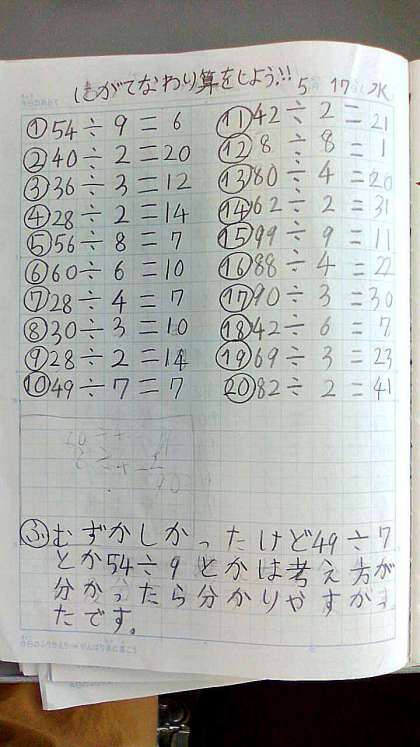 にがてなわり算をしよう!! 5 17 水
①54÷9=6
②40÷2=20
③36÷3=12
④28÷2=14
⑤56÷8=7
⑥60÷6=10
⑦28÷4=7
⑧30÷3=10
⑨28÷2=14
⑩49÷7=7
⑪42÷2=21
⑫8÷8=1
⑬80÷4=20
⑭62÷2=31
⑮99÷9=11
⑯88÷4=22
⑰90÷3=30
⑱42÷6=7
⑲69÷3=23
⑳82÷2=41
ふむずかしかったけど49÷7
とか54÷9とかは考え方が
分かったら分かりやすかっ
たです。